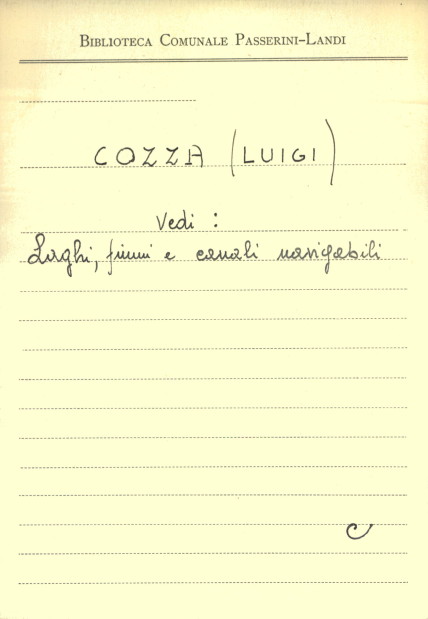 BIBLIOTECA COMUNALE PASSERINI-LANDI
COZZA (LUIGI)
Vedi :
Laghi, fiumi e canali navigabili
C